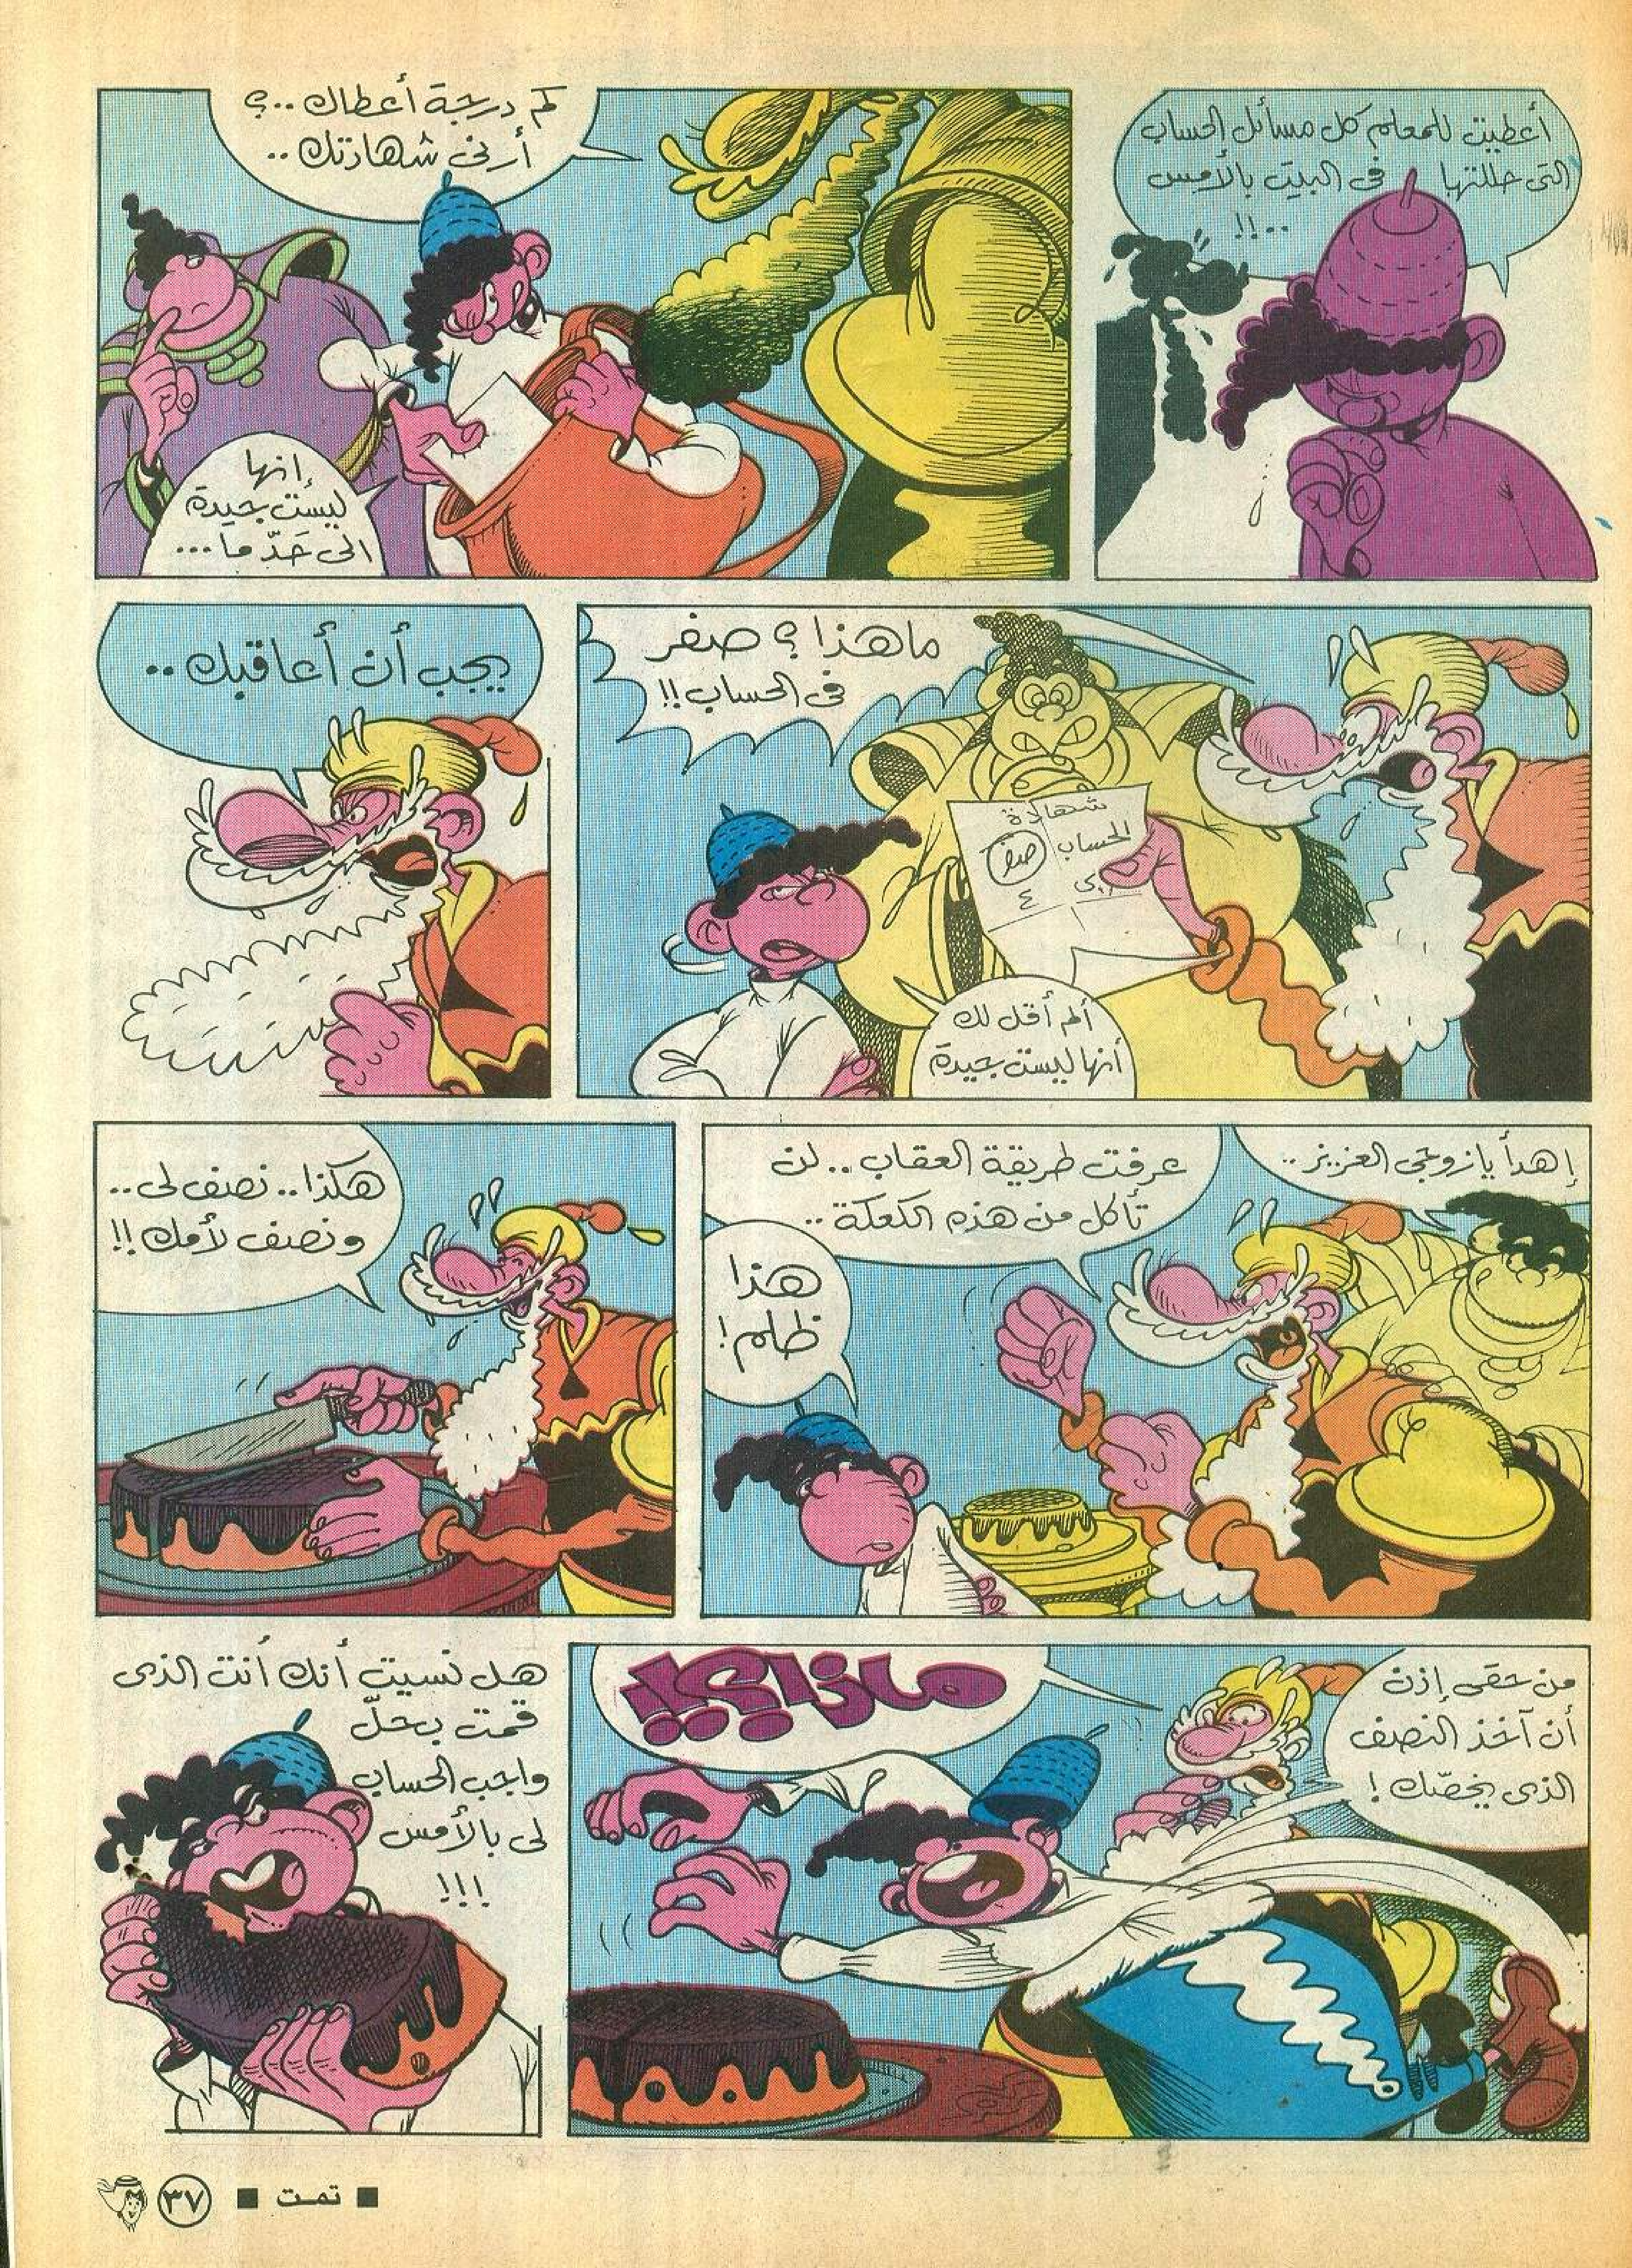 أعطيت للمعلم كل مسائل الحساب
التى حللتها فى البيت بالأمس
..!!
كم درجة أعطاك ..؟
أرنى شهادتك ..
إنها
ليست جيدة
الى حَدّ ما ...
ما هذا ؟ صفر
فى الحساب !!
شهادة
الحساب
صفر
٤
ألم أقل لك
أنها ليست جيدة
يجب أن أعاقبك ..
إهدأ يا زوجى العزيز ..
عرفت طريقة العقاب .. لن
تأكل من هذه الكعكة ..
هذا
ظلم !
هكذا .. نصف لى ..
ونصف لأمك !!
من حقى إذن
أن آخذ النصف
الذى يخصّك !
ماذا ؟!
هل نسيت أنك أنت الذى
قمت بحلّ
واجب الحساب
لى بالأمس
!!!
■ تمت ■
٣٧